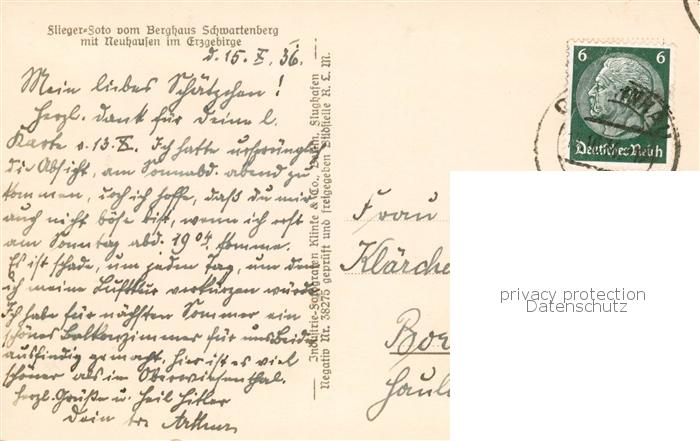 Flieger-Foto vom Berghaus Schwartenberg
mit Neuhausen im Erzgebirge
d. 15. X. 36.
Mein liebes Schätzchen!
Herzl. Dank für Deine l.
Karte v. 13. X. Ich hatte ursprünglich
die Absicht, am Sonnabd. abend zu
kommen, doch ich hoffe, daß du mir
auch nicht böse bist, wenn ich erst
am Sonntag abd. 19 04 komme.
Es ist schade, um jeden Tag, um den
ich meine Luftkur verkürzen würde
Ich habe für nächsten Sommer ein
schönes Balkonzimmer für uns Beide
ausfindig gemacht, hier ist es viel
schöner als in Oberwiesenthal.
Herzl. Grüße u. Heil Hitler
Dein Arthur
Industrie-Fotografen Klinke & Co., Berlin, Flughafen
Negativ Nr. 38275 geprüft und freigegeben Bildstelle R. L. M.
6 6
Deutsches Reich
Frau
Klärche
Bor
privacy protection
Datenschutz